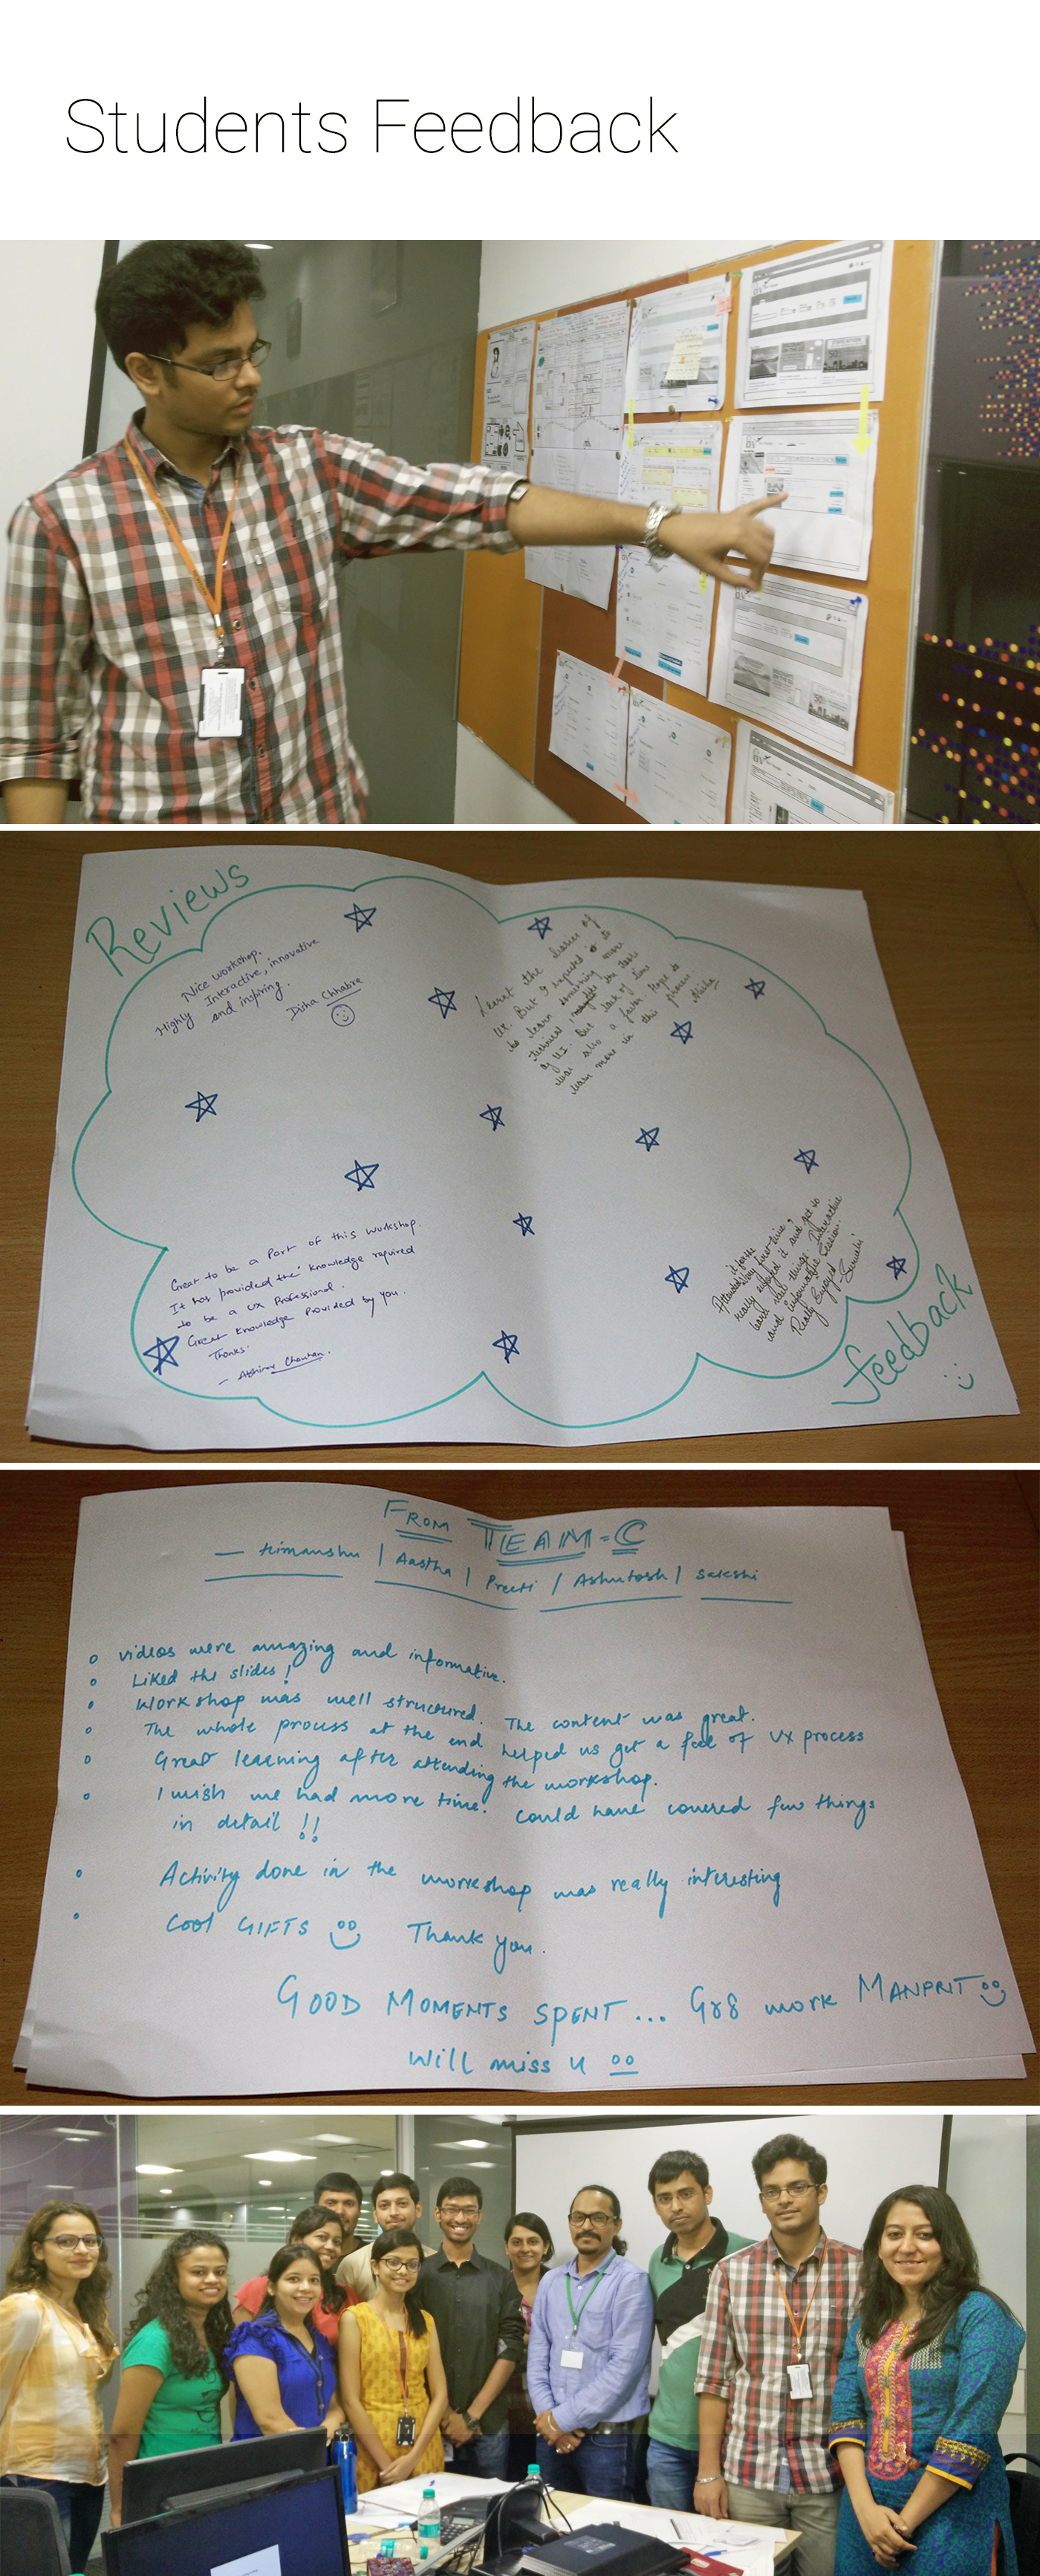 Students Feedback
Reviews
Nice workshop.
Highly Interactive, innovative
and inspiring.
Disha Chhabra
Learnt the basics of
UX. But I expected it to
to learn something more
technical, like tools
of UI. But lack of time
was also a factor. Hope to
learn more in this process
Great to be a Part of this workshop.
It has provided the knowledge required
to be a UX Professional.
Great Knowledge Provided by you.
Thanks.
- Abhinav Chauhan.
Attended it for the
very first time,
really enjoyed it and got to
learn new things. Interactive
and Informative Session.
Really Enjoyed
Feedback
FROM TEAM-C
— Himanshu | Aastha | Preeti / Ashutosh | Sakshi
videos were amazing and informative.
Liked the slides!
Workshop was well structured. The content was great.
The whole process at the end helped us get a feel of UX process
Great learning after attending the workshop.
I wish we had more time. Could have covered few things
in detail !!
Activity done in the workshop was really interesting
Cool GIFTS Thank you.
GOOD MOMENTS SPENT... Gr8 work MANPRIT
Will miss u